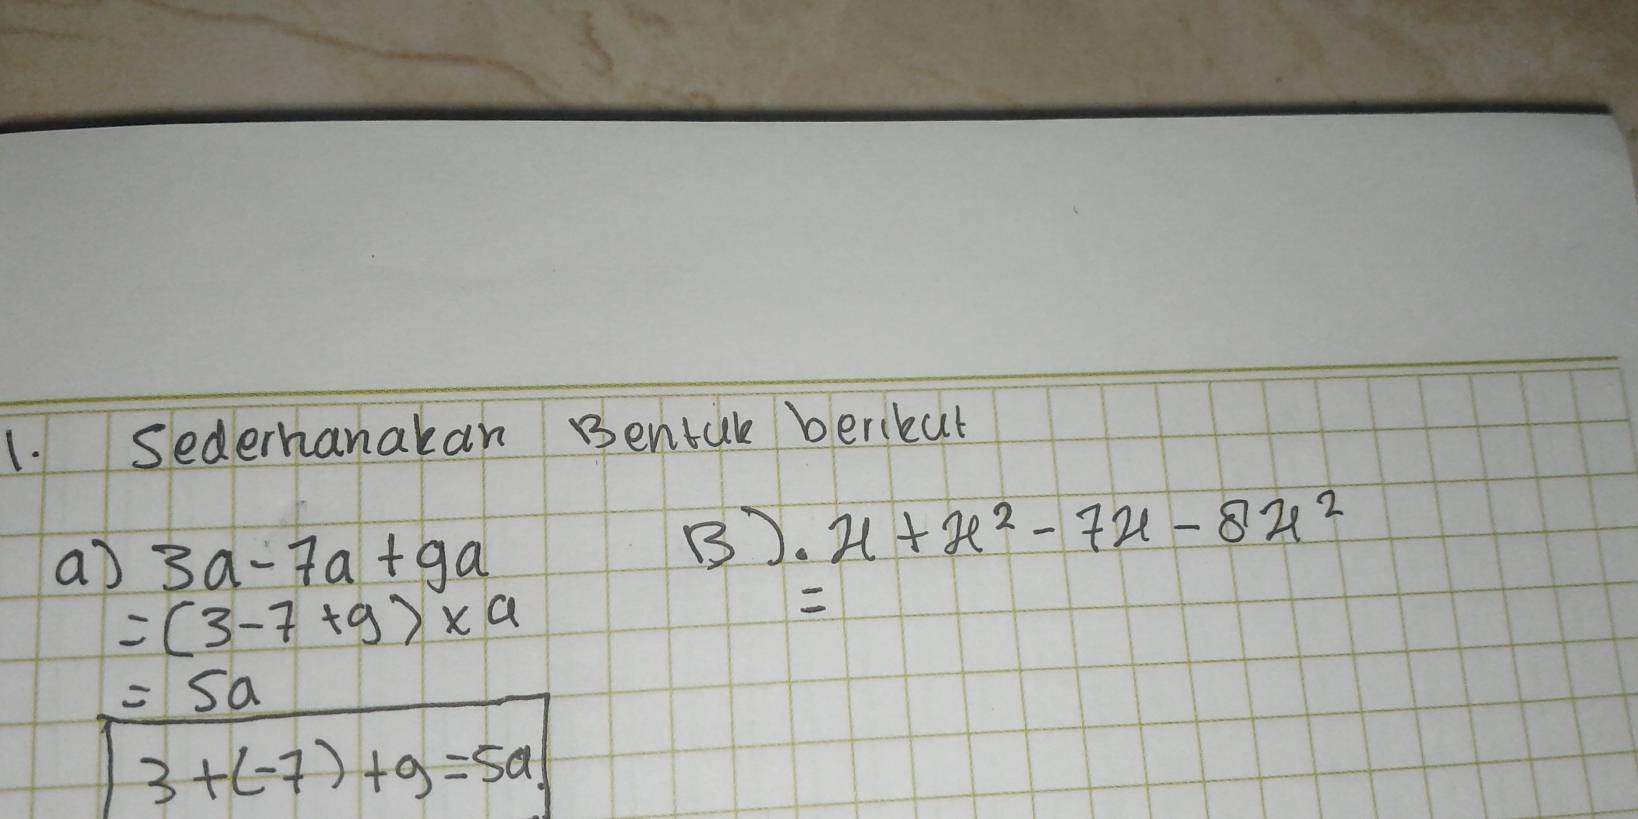 1. Sederhanakan Bentuk berikut
a) 3a - 7a + 9a
= (3 - 7 + 9) × a
= 5a
3 + (-7) + 9 = 5a.
B). x + x² - 7x - 8x²
=